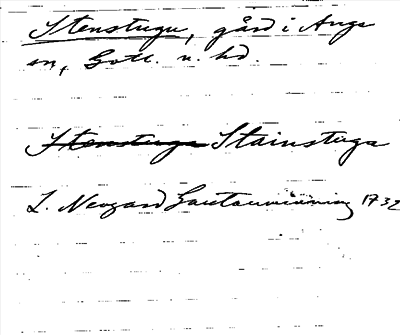 Stenstugu, gård i Ange
sn, Gotl. n. hd.
Stenstuga Stainstuga
L. Neogard Gautauminning 1732